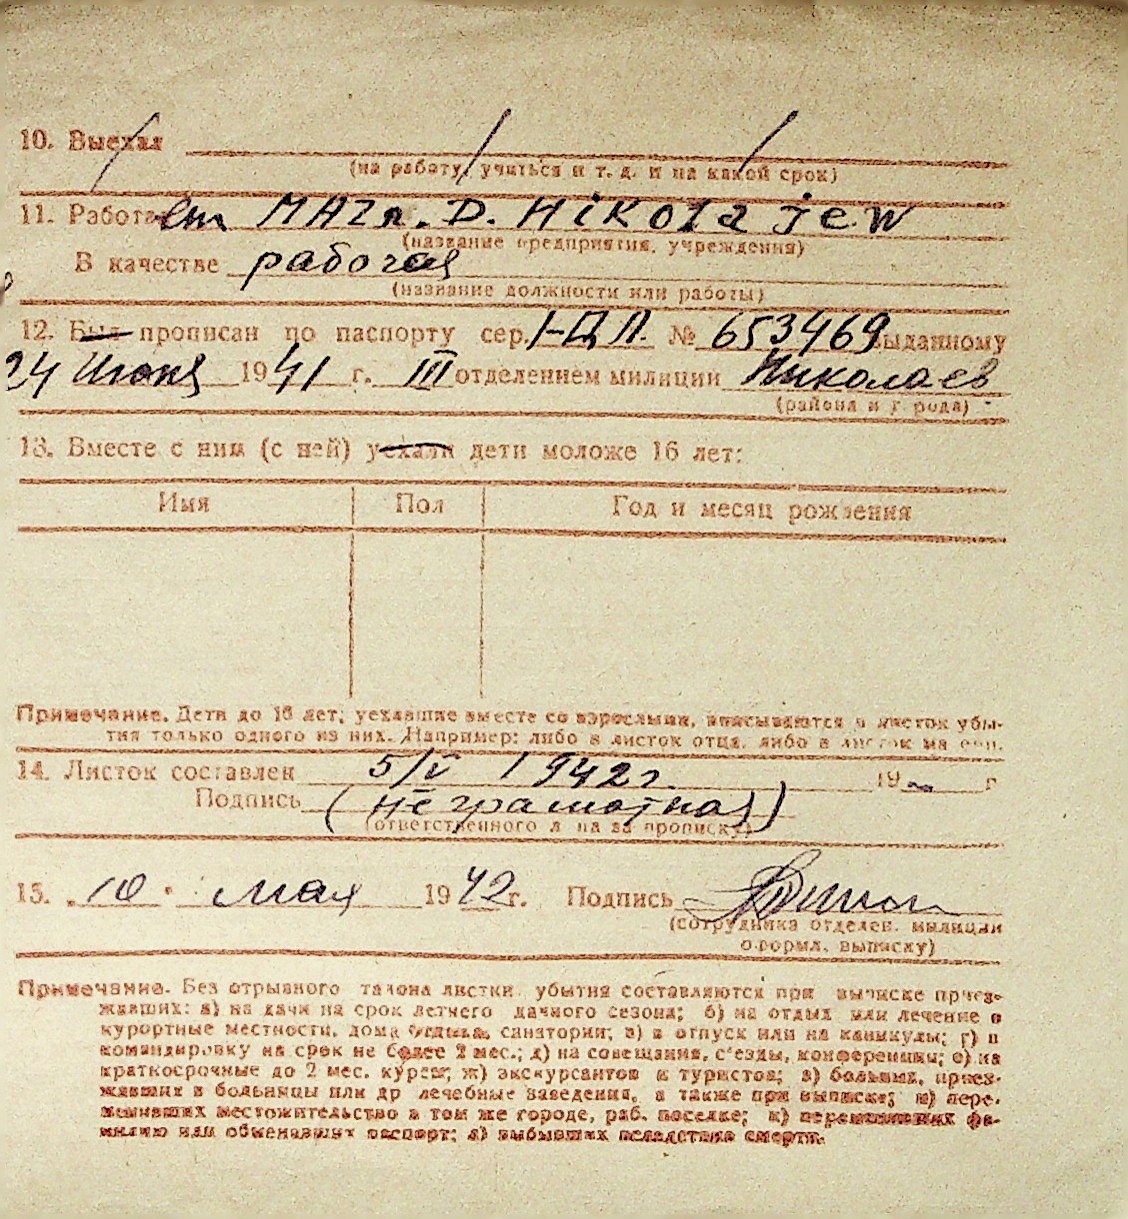 10. Выехал
(на работу, учиться и т. д. и на какой срок)
11. Работает МАГп. D. Nikolajew
(название предприятия, учреждения)
В качестве рабочая
(название должности или работы)
12. Был прописан по паспорту сер. I-ДЛ. № 653469 выданному
24 Июня 1941 г. III отделением милиции Николаев
(района и города)
13. Вместе с ним (с ней) уехали дети моложе 16 лет:
Имя Пол Год и месяц рождения
Примечание. Дети до 16 лет, уехавшие вместе со взрослыми, вписываются в листок убы-
тия только одного из них. Например: либо в листок отца, либо в листок матери.
14. Листок составлен 5/V 1942 г. 19 г
Подпись (неграмотная)
(ответственного лица за прописку)
15. 10 мая 1942 г. Подпись
(сотрудника отделен. милиции
оформл. выписку)
Примечание. Без отрывного талона листки убытия составляются при выписке приез-
жавших: а) на дачи на срок летнего дачного сезона; б) на отдых или лечение в
курортные местности, дома отдыха, санатории; в) в отпуск или на каникулы; г) в
командировку на срок не более 2 мес.; д) на совещания, с'езды, конференции; е) на
краткосрочные до 2 мес. курсы; ж) экскурсантов и туристов; з) больных, приез-
жавших в больницы или др лечебные заведения, а также при выписке; и) пере-
менивших местожительство в том же городе, раб. поселке; к) переменивших фа-
милию или обменявших паспорт; л) выбывших вследствие смерти.